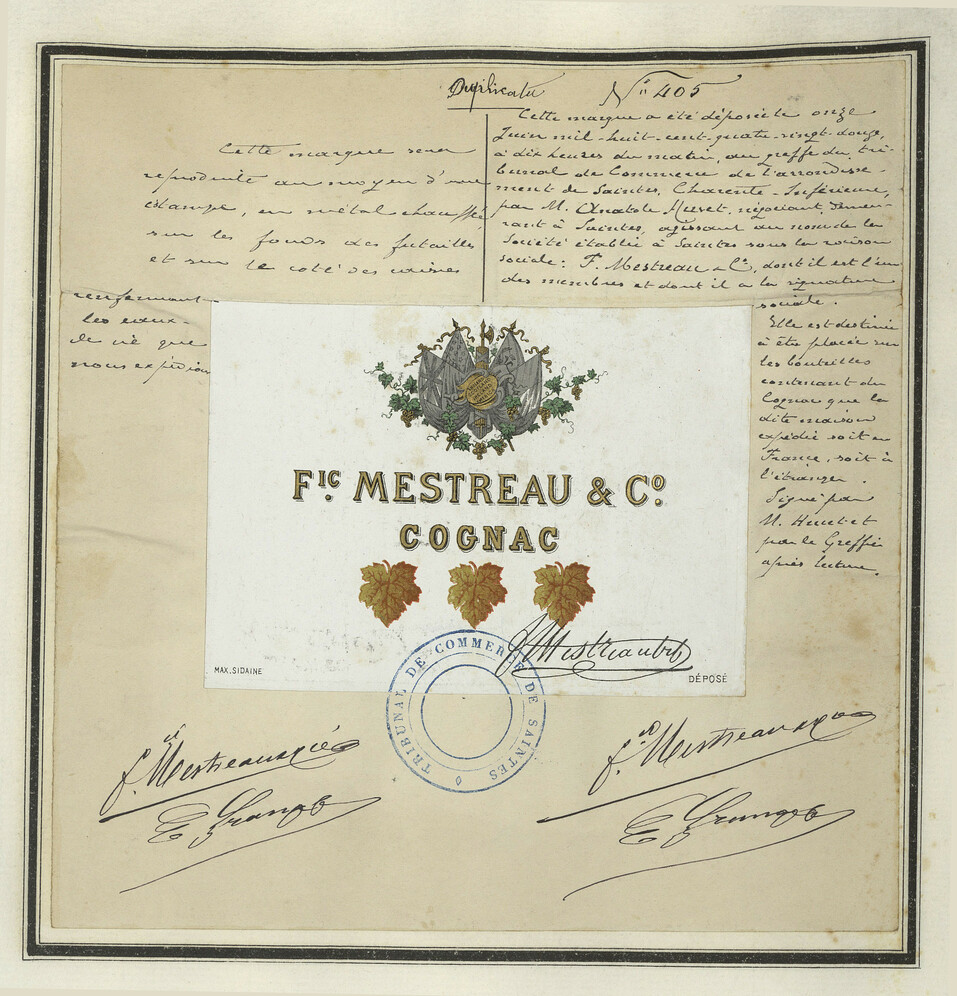 Duplicata
N° 405
Cette marque sera
reproduite au moyen d'une
estampe, en métal chauffé
sur les fonds des futailles
et sur le coté des caisses
renfermant
les eaux-
de vie que
nous expédions
Cette marque a été déposée le onze
Juin mil-huit-cent-quatre-vingt-douze,
à dix heures du matin, au greffe du tri-
bunal de Commerce de l'arrondisse-
ment de Saintes, Charente-Inférieure,
par M. Anatole Huvet, négociant, demeu-
rant à Saintes, agissant au nom de la
Société établie à Saintes sous la raison
sociale: F. Mestreau & Cie, dont il est l'un
des membres et dont il a la signature
sociale.
Elle est destinée
à être placée sur
les bouteilles
contenant du
Cognac que la
dite maison
expédie soit en
France, soit à
l'étranger.
Signé par
M. Huvet et
par le Greffier
après lecture.
FIC MESTREAU & CO
COGNAC
MAX. SIDAINE
DÉPOSÉ
TRIBUNAL DE COMMERCE DE SAINTES
f. Mestreau & Cie
f. Mestreau & Co